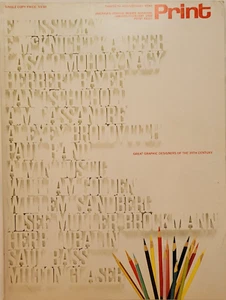 Print
EL LISSITZKY
E. MCKNIGHT KAUFFER
LASZLO MOHOLY-NAGY
HERBERT BAYER
JAN TSCHICHOLD
A.M. CASSANDRE
ALEXEY BRODOVITCH
PAUL RAND
GREAT GRAPHIC DESIGNERS OF THE 20TH CENTURY
ALVIN LUSTIG
WILLIAM GOLDEN
WILLEM SANDBERG
JOSEF MULLER-BROCKMANN
HERB LUBALIN
SAUL BASS
MILTON GLASER